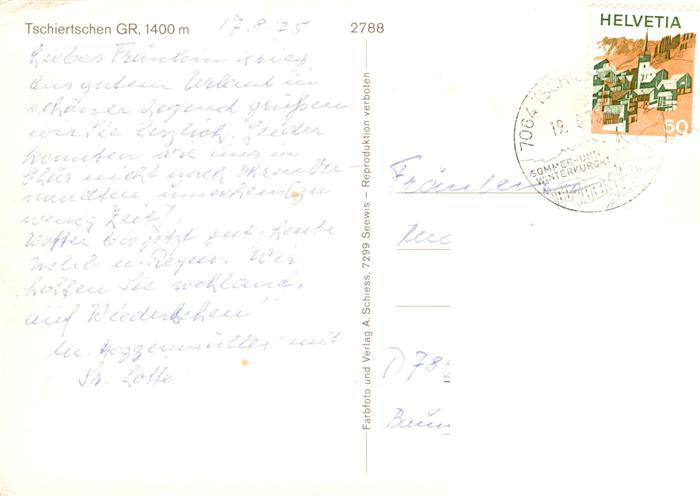 Tschiertschen GR, 1400 m
17.8.75
Liebes Fräulein Krieg,
Aus gutem Urlaub in
schöner Gegend grüßen
wir Sie herzlich. Leider
konnten wir uns in
Chur nicht nach Ihren Ver-
wandten umsehen (zu
wenig Zeit)
Wetter bis jetzt gut. heute
Nebel u. Regen. Wir
hoffen Sie wohlauf,
auf Wiedersehen
mit
Lotte
2788
Farbfoto und Verlag A. Schiess, 7299 Seewis – Reproduktion verboten
HELVETIA
50
7064 TSCHIE
19. 8.75
SOMMER-UND
WINTERKURORT
Fräulein
D 78
Baum